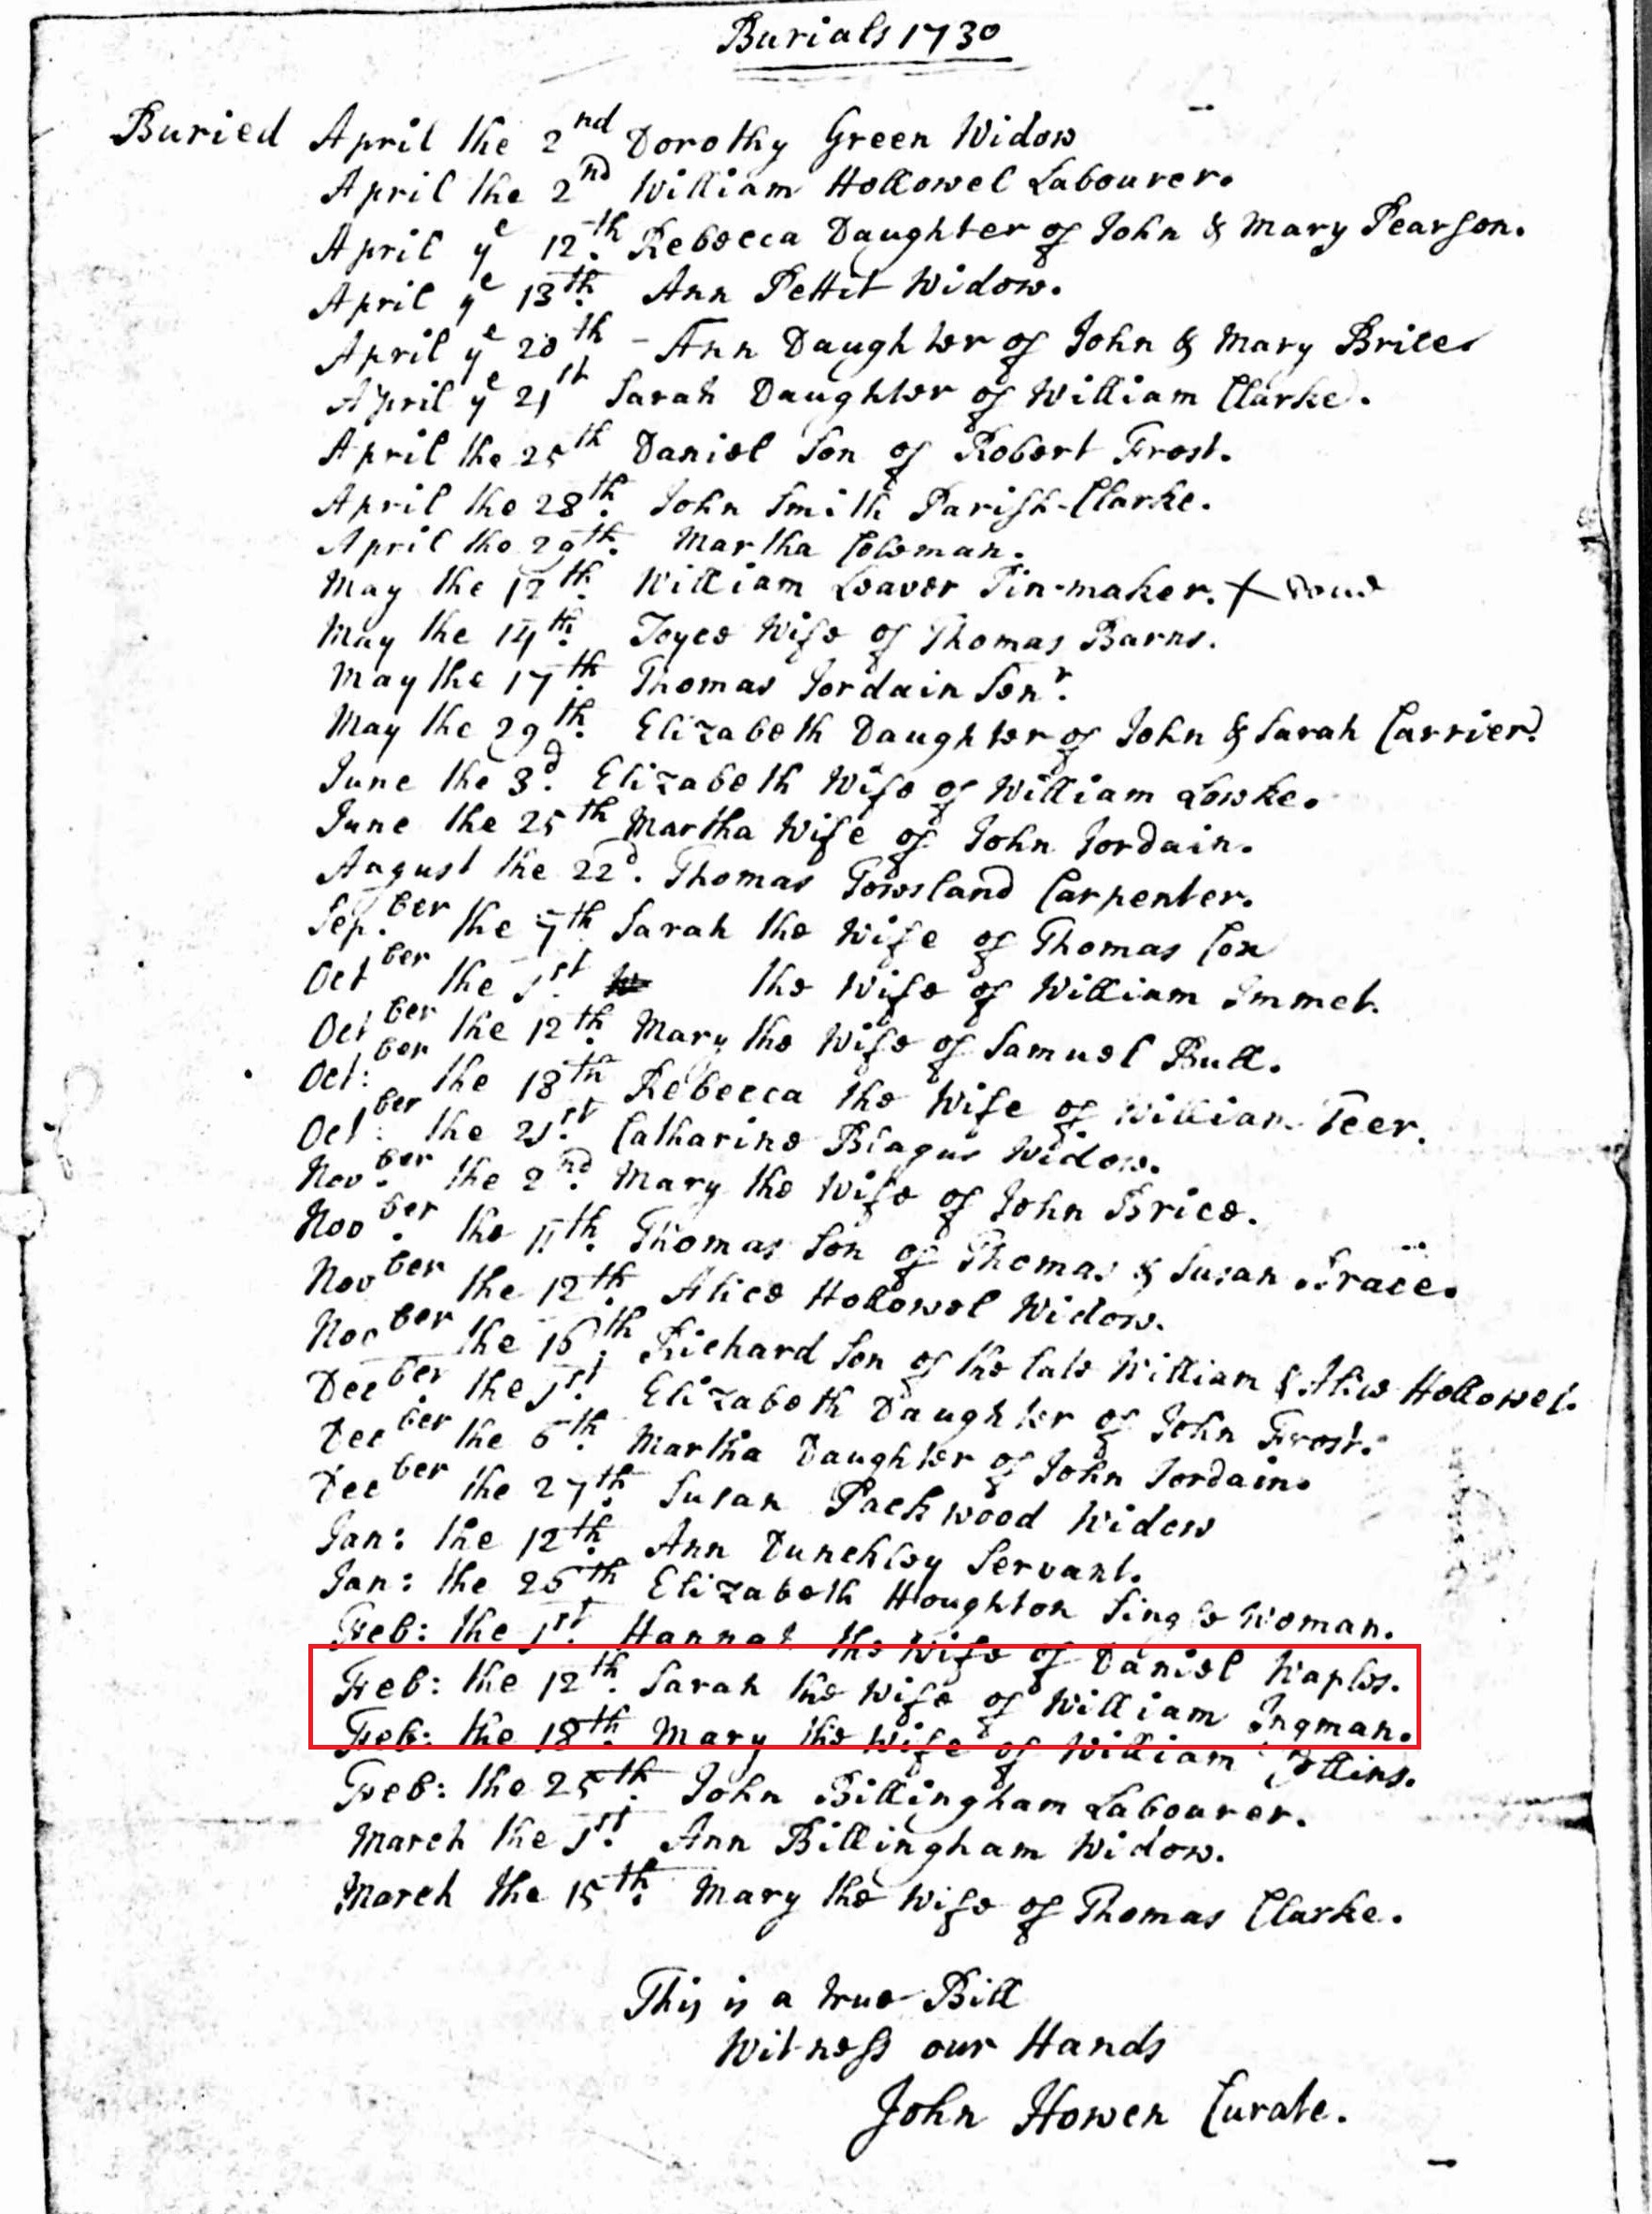 Burials 1730
Buried April the 2nd Dorothy Green Widow
April the 2nd William Hollowel Labourer.
April ye 12th. Rebecca Daughter of John & Mary Pearson.
April ye 13th. Ann Pettit Widow.
April ye 20th - Ann Daughter of John & Mary Brice
April ye 21st Sarah Daughter of William Clarke.
April the 25th Daniel Son of Robert Frost.
April the 28th. John Smith Parish-Clarke.
April the 29th. Martha Coleman.
May the 12th. William Leaver Pin-maker. X
May the 14th. Joyce Wife of Thomas Barns.
May the 17th. Thomas Jordain Senr.
May the 29th. Elizabeth Daughter of John & Sarah Carrier.
June the 3d. Elizabeth Wife of William Lowke.
June the 25th Martha Wife of John Jordain.
August the 22d. Thomas Towsland Carpenter.
Sep.ber the 7th Sarah the Wife of Thomas Cox
Octber the 1st. the Wife of William Immet.
Octber the 12th. Mary the Wife of Samuel Bull.
Oct:ber the 18th Rebecca the Wife of William Teer.
Oct:ber the 21st. Catharine Blagus Widow.
Nov.ber the 2nd. Mary the Wife of John Brice.
Nov.ber the 11th. Thomas Son of Thomas & Susan
Novber the 12th. Alice Hollowel Widow.
Novber the 16th. Richard Son of the late William & Alice Hollowel.
Decber the 1st. Elizabeth Daughter of John Frost.
Decber the 6th. Martha Daughter of John Jordain.
Decber the 27th. Susan Packwood Widow
Jan: the 12th. Ann Dunchley Servant.
Jan: the 26th Elizabeth Houghton Single Woman.
Feb: the 1st. Hannah the Wife of Daniel Waples.
Feb: the 12th. Sarah the Wife of William Ingman.
Feb: the 18th. Mary the Wife of William Collins.
Feb: the 25th. John Billingham Labourer.
March the 1st. Ann Billingham Widow.
March the 15th. Mary the Wife of Thomas Clarke.
This is a true Bill
Witness our Hands
John Howen Curate.